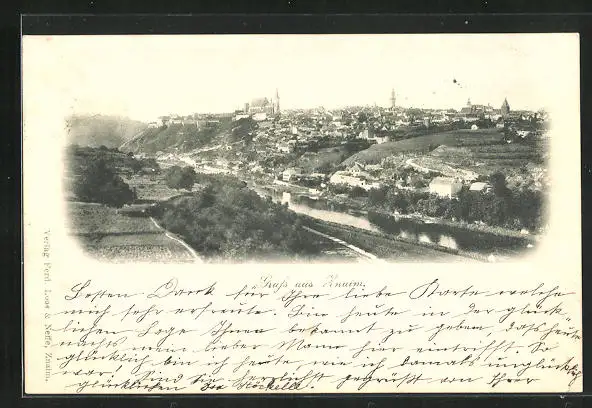 Gruß aus Znaim.
Besten Dank für Ihre liebe Karte welche
mich sehr erfreute. Bin heute in der glück-
lichen Lage Ihnen bekannt zu geben, dass heute
nachts mein lieber Mann hier eintrifft. So
glücklich bin ich heute, wie ich damals unglücklich
war! Sind Sie herzlichst gegrüsst von Ihrer
glücklichen
Verlag Ferd. Loos & Neffe, Znaim.